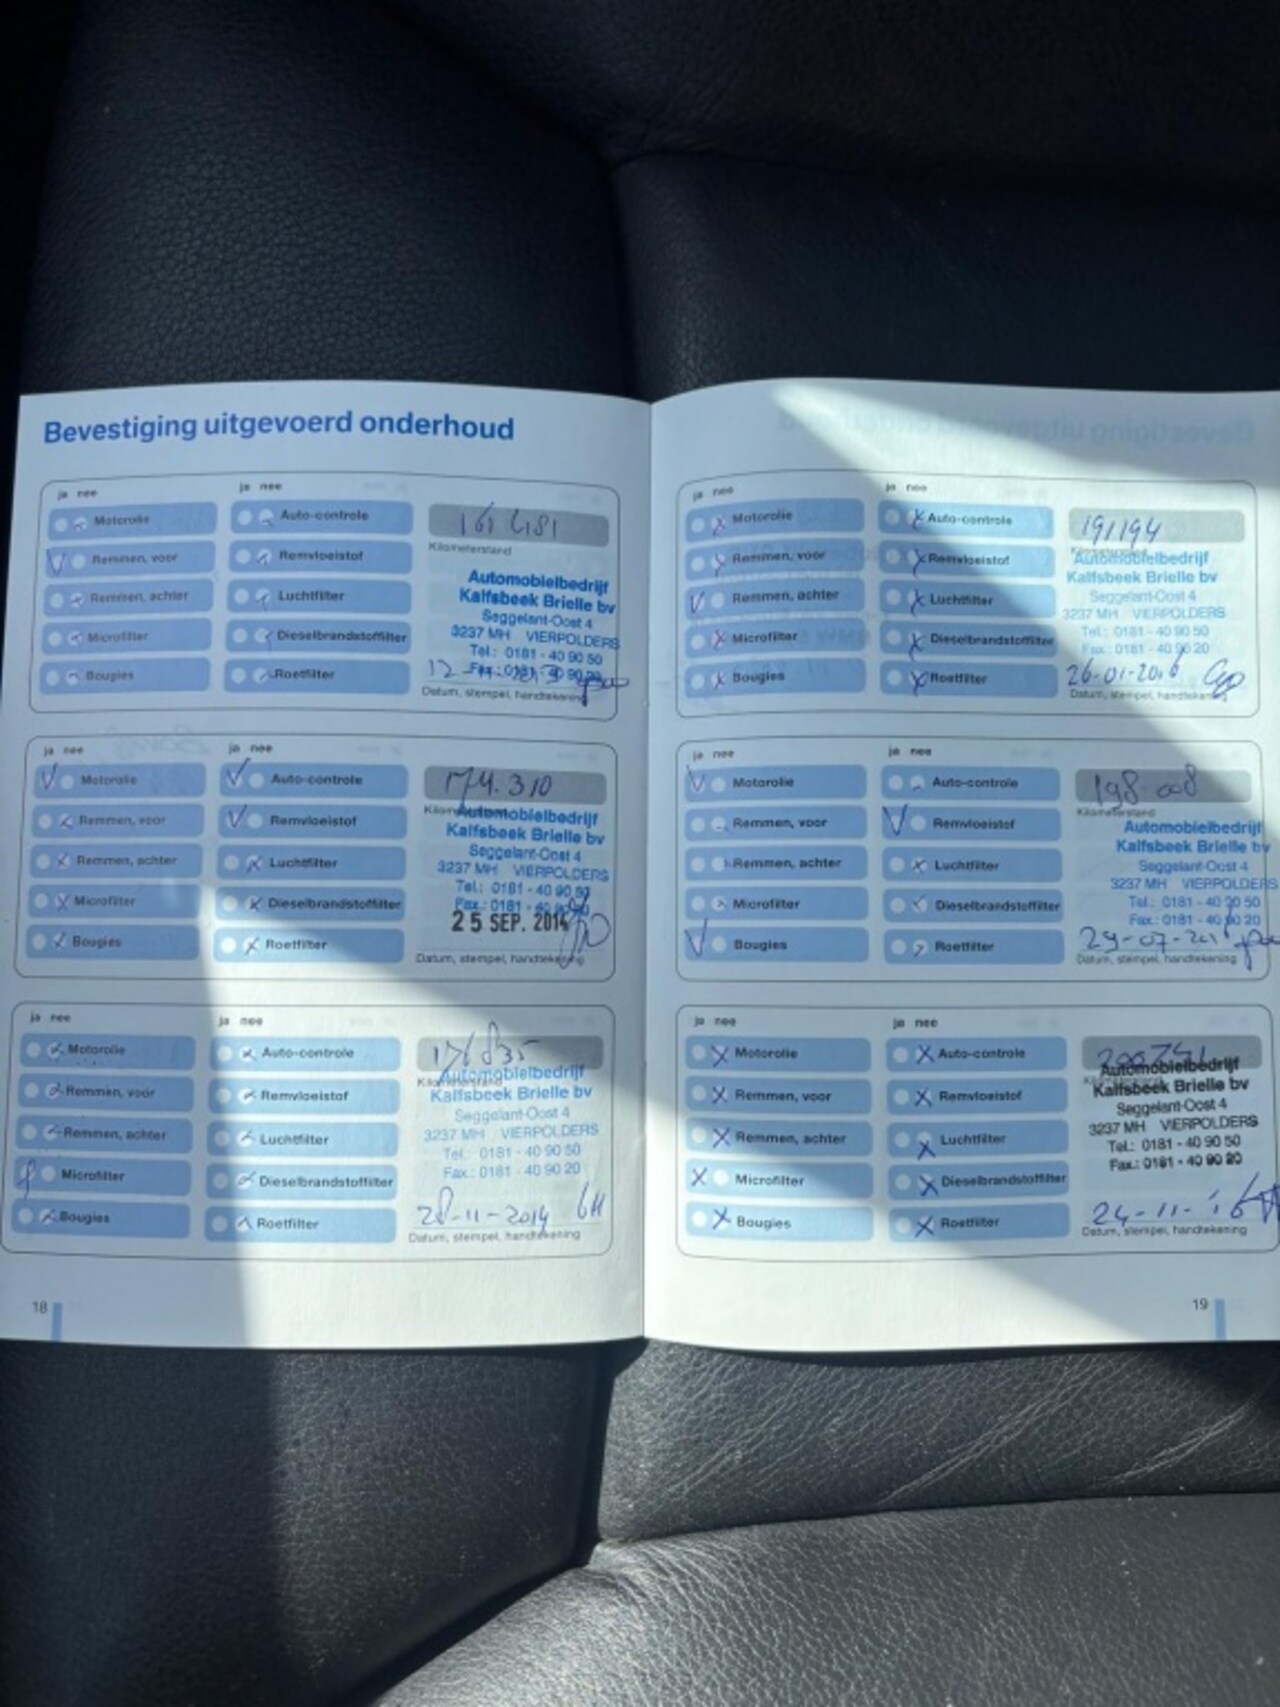 Bevestiging uitgevoerd onderhoud
ja nee
ja nee
Motorolie
Auto-controle
Remmen, voor
Remvloeistof
Remmen, achter
Luchtfilter
Microfilter
Dieselbrandstoffilter
Bougies
Roetfilter
Kilometerstand
Automobielbedrijf
Kalfsbeek Brielle bv
Seggelant-Oost 4
3237 MH VIERPOLDERS
Tel.: 0181 - 40 90 50
Fax.: 0181 - 40 90 20
Datum, stempel, handtekening
ja nee
ja nee
Motorolie
Auto-controle
Remmen, voor
Remvloeistof
Remmen, achter
Luchtfilter
Microfilter
Dieselbrandstoffilter
Bougies
Roetfilter
174.310
Automobielbedrijf
Kalfsbeek Brielle bv
Seggelant-Oost 4
3237 MH VIERPOLDERS
Tel.: 0181 - 40 90 50
Fax.: 0181 - 40 90 20
25 SEP. 2014
Datum, stempel, handtekening
ja nee
ja nee
Motorolie
Auto-controle
Remmen, voor
Remvloeistof
Remmen, achter
Luchtfilter
Microfilter
Dieselbrandstoffilter
Bougies
Roetfilter
Kilometerstand
Automobielbedrijf
Kalfsbeek Brielle bv
Seggelant-Oost 4
3237 MH VIERPOLDERS
Tel.: 0181 - 40 90 50
Fax.: 0181 - 40 90 20
28-11-2014
Datum, stempel, handtekening
18
ja nee
ja nee
Motorolie
Auto-controle
Remmen, voor
Remvloeistof
Remmen, achter
Luchtfilter
Microfilter
Dieselbrandstoffilter
Bougies
Roetfilter
191194
Kilometerstand
Automobielbedrijf
Kalfsbeek Brielle bv
Seggelant-Oost 4
3237 MH VIERPOLDERS
Tel.: 0181 - 40 90 50
Fax.: 0181 - 40 90 20
26-01-2016
Datum, stempel, handtekening
ja nee
ja nee
Motorolie
Auto-controle
Remmen, voor
Remvloeistof
Remmen, achter
Luchtfilter
Microfilter
Dieselbrandstoffilter
Bougies
Roetfilter
198.008
Kilometerstand
Automobielbedrijf
Kalfsbeek Brielle bv
Seggelant-Oost 4
3237 MH VIERPOLDERS
Tel.: 0181 - 40 90 50
Fax.: 0181 - 40 90 20
Datum, stempel, handtekening
ja nee
ja nee
Motorolie
Auto-controle
Remmen, voor
Remvloeistof
Remmen, achter
Luchtfilter
Microfilter
Dieselbrandstoffilter
Bougies
Roetfilter
Automobielbedrijf
Kalfsbeek Brielle bv
Seggelant-Oost 4
3237 MH VIERPOLDERS
Tel.: 0181 - 40 90 50
Fax.: 0181 - 40 90 20
24-11-'16
Datum, stempel, handtekening
19